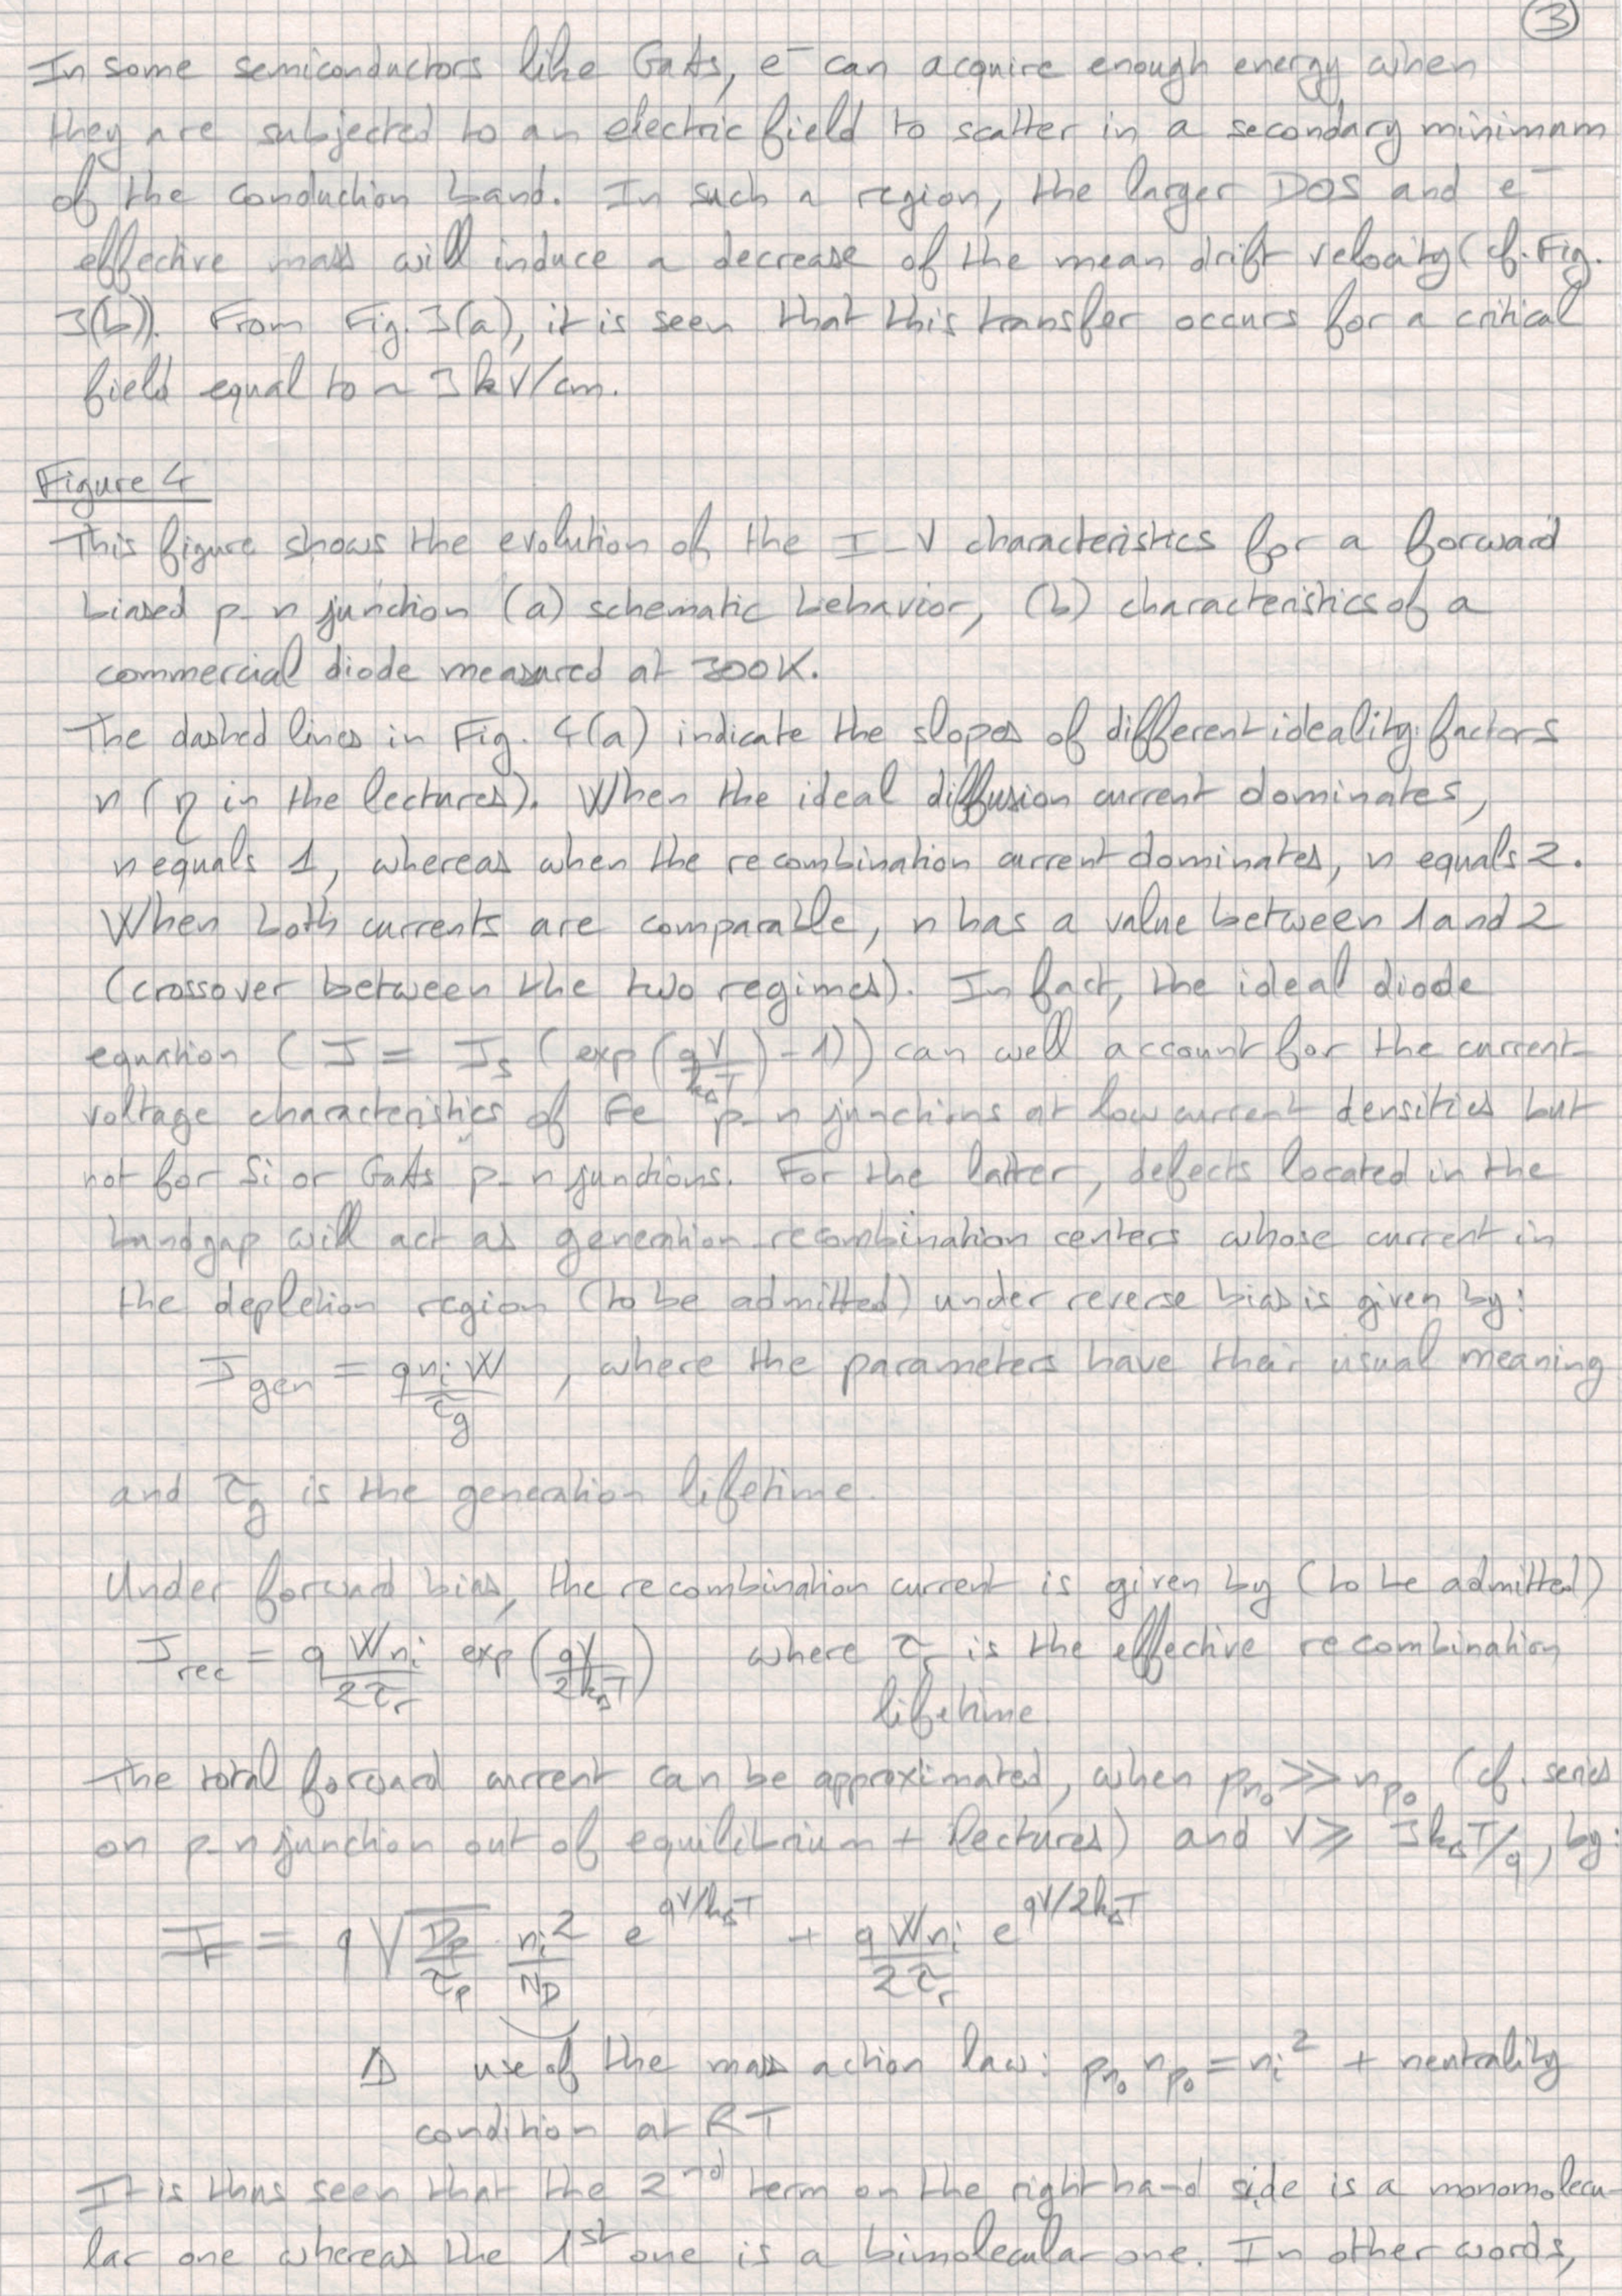 3
In some semiconductors like GaAs, e⁻ can acquire enough energy when
they are subjected to an electric field to scatter in a secondary minimum
of the conduction band. In such a region, the larger DOS and e⁻
effective mass will induce a decrease of the mean drift velocity (cf. Fig.
3(b)). From Fig. 3(a), it is seen that this transfer occurs for a critical
field equal to ~ 3 kV/cm.
Figure 4
This figure shows the evolution of the I-V characteristics for a forward
biased p-n junction (a) schematic behavior, (b) characteristics of a
commercial diode measured at 300K.
The dashed lines in Fig. 4(a) indicate the slopes of different ideality factors
n (η in the lectures). When the ideal diffusion current dominates,
n equals 1, whereas when the recombination current dominates, n equals 2.
When both currents are comparable, n has a value between 1 and 2
(crossover between the two regimes). In fact, the ideal diode
equation (J = J_s (exp(qV/k_BT) - 1)) can well account for the current-
voltage characteristics of Ge p-n junctions at low current densities but
not for Si or GaAs p-n junctions. For the latter, defects located in the
bandgap will act as generation-recombination centers whose current in
the depletion region (to be admitted) under reverse bias is given by:
J_gen = q n_i W / τ_g , where the parameters have their usual meaning
and τ_g is the generation lifetime.
Under forward bias, the recombination current is given by (to be admitted)
J_rec = q W n_i / 2τ_r exp(qV/2k_BT) where τ_r is the effective recombination
lifetime
The total forward current can be approximated, when p_n0 >> n_p0 (cf. series
on p-n junction out of equilibrium + lectures) and V ≥ 3k_BT/q, by:
J_F = q √(D_p/τ_p) n_i²/N_D e^(qV/k_BT) + q W n_i / 2τ_r e^(qV/2k_BT)
⚠ use of the mass action law: p_n0 n_p0 = n_i² + neutrality
condition at RT
It is thus seen that the 2nd term on the right hand side is a monomolecu-
lar one whereas the 1st one is a bimolecular one. In other words,